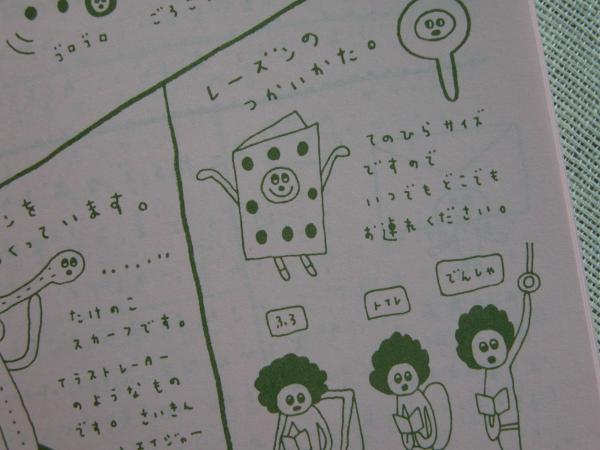 ゴロゴロ
レーズンの
つかいかた。
てのひらサイズ
ですので
いつでもどこでも
お連れください。
ふろ
トイレ
でんしゃ
くっています。
‥‥‥‥
たけのこ
スカーフです。
イラストレーター
のようなもの
です。さいきん